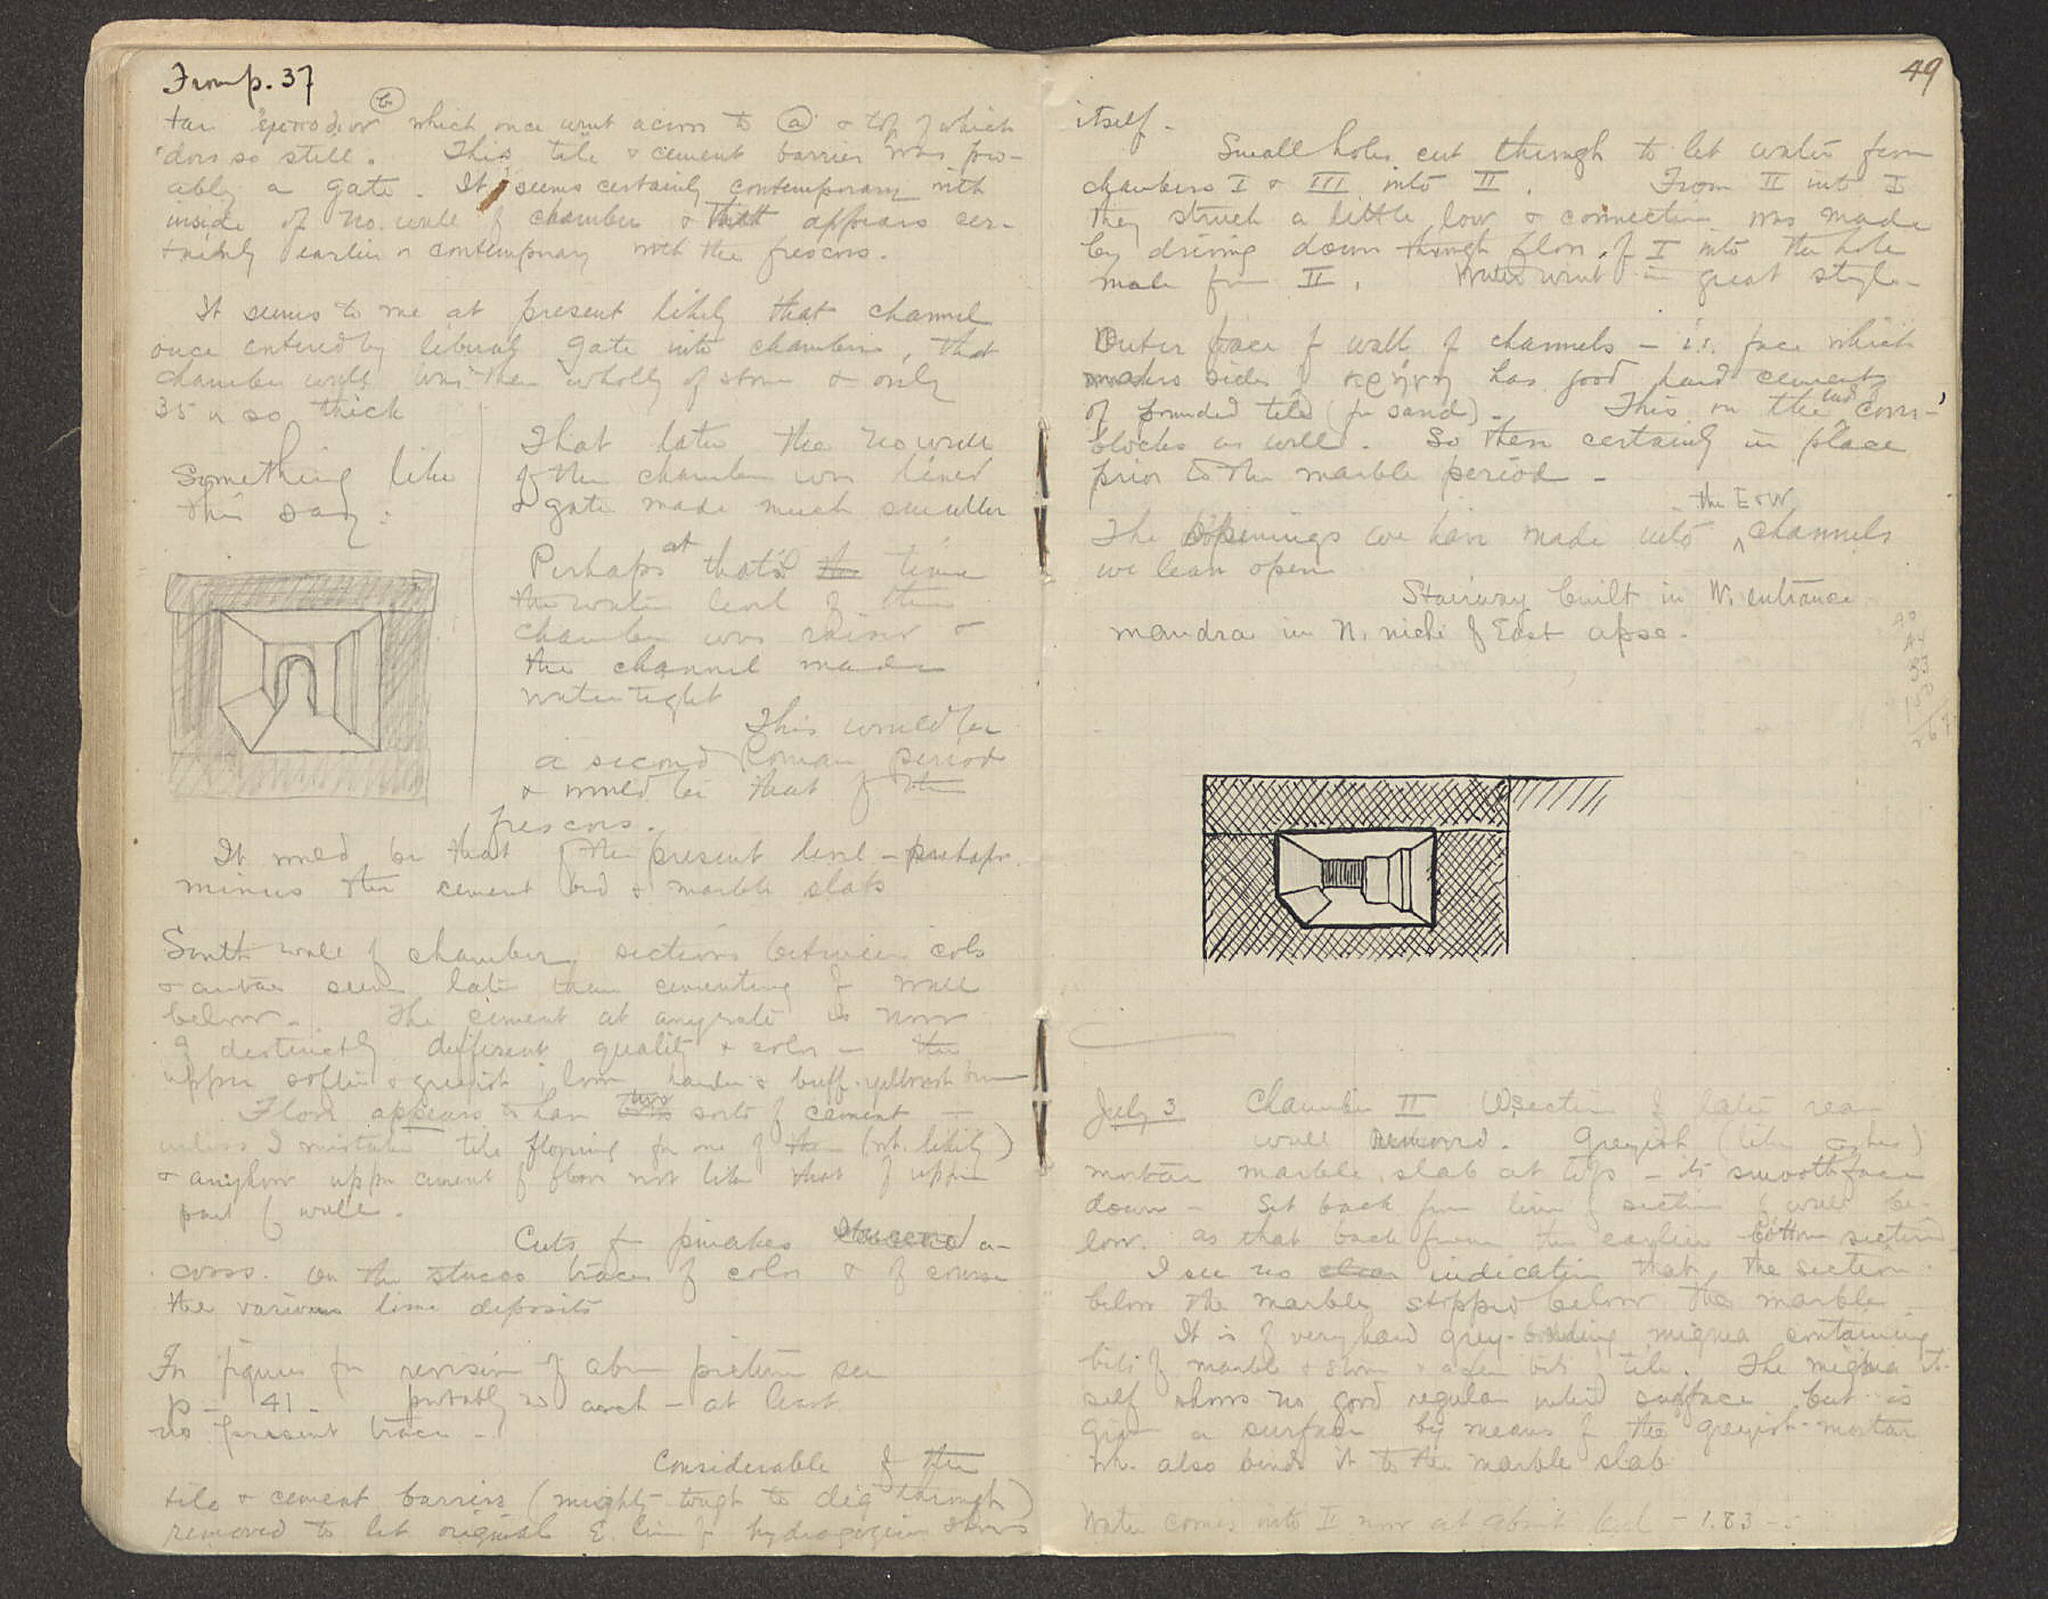 From p. 37
b
which once went across to a & top of which
does so still. This tile & cement barrier was pro-
ably a gate. It seems certainly contemporary with
inside of No. wall of chamber & that appears cer-
tainly earlier or contemporary with the frescoes.
It seems to me at present likely that channel
once entered by liberal gate into chamber, that
chamber wall was then wholly of stone & only
35 or so thick
Something like
this say:
That later the No wall
of the chamber was lined
& gate made much smaller
Perhaps at that time
the water level of the
chamber was raised &
the channel made
watertight
This would be
a second Roman period
& would be that of the
frescoes.
It would be that of the present level – perhaps
minus the cement bed & marble slabs
South wall of chamber, sections between cols
& antae seem later than cementing of wall
below. The cement at anyrate is now
of distinctly different quality & color – the
upper softer & greyish; lower harder & buff-yellowish
Floor appears to have two sorts of cement –
unless I mistake tile flooring for one of them (not likely)
& anyhow upper cement of floor not like that of upper
part of wall.
Cuts for pinakes a-
cross. On the stucco traces of color & of course
the various lime deposits
For figures for revision of above picture see
p – 41 – probably no arch – at least
no present trace –
Considerable of the
tile & cement barrier (mighty tough to dig through)
removed to let original E. line of
49
itself –
Small holes cut through to let water from
chambers I & III into II. From II into I
they struck a little low & connection was made
by driving down through floor of I into the hole
made from II. Water went in great style –
Outer face of wall of channels – i.e. face which
makes sides of has good hard cement
of pounded tile (for sand) – This on the
blocks as well. So then certainly in place
prior to the marble period –
The openings we have made into the E & W channels
we leave open
Stairway built in W. entrance
mandra in N. niche of East apse.
July 3 Chamber II W. section of later rear
wall removed. Greyish (like ashes)
mortar marble slab at top – its smooth face
down – Set back from line of section of wall be-
low as that back from the earlier bottom section
I see no clear indication that the section
below the marble stopped below the marble.
It is of very hard grey- migma containing
bits of marble & stone & a few bits of tile. The migma it-
self shows no good regular surface but is
given a surface by means of the greyish mortar
wh. also binds it to the marble slab
Water comes into II now at about level – 1.83 –